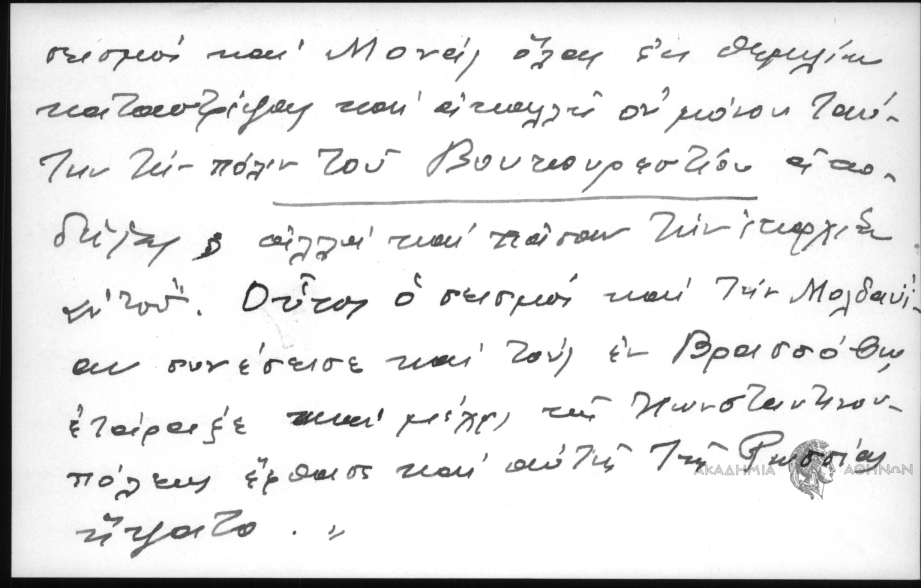 σεισμοί καὶ Μονάς ὅλας ἐκ θεμελίων
καταστρέψας καὶ οὐ μόνον ταύ-
την τὴν πόλιν τοῦ Βουκουρεστίου
ἀλλὰ καὶ πᾶσαν τὴν ἐπαρχίαν
αὐτοῦ. Οὗτος ὁ σεισμός καὶ τὴν Μολδαυί-
αν συνέσεισε καὶ τοὺς ἐν Βρασσόβῳ
ἐτάραξε καὶ μέχρι τῆς Κωνσταντινου-
πόλεως ἔφθασε καὶ αὐτῆς τῆς Ρωσσίας
ἥψατο . "
ΑΚΑΔΗΜΙΑ ΑΘΗΝΩΝ